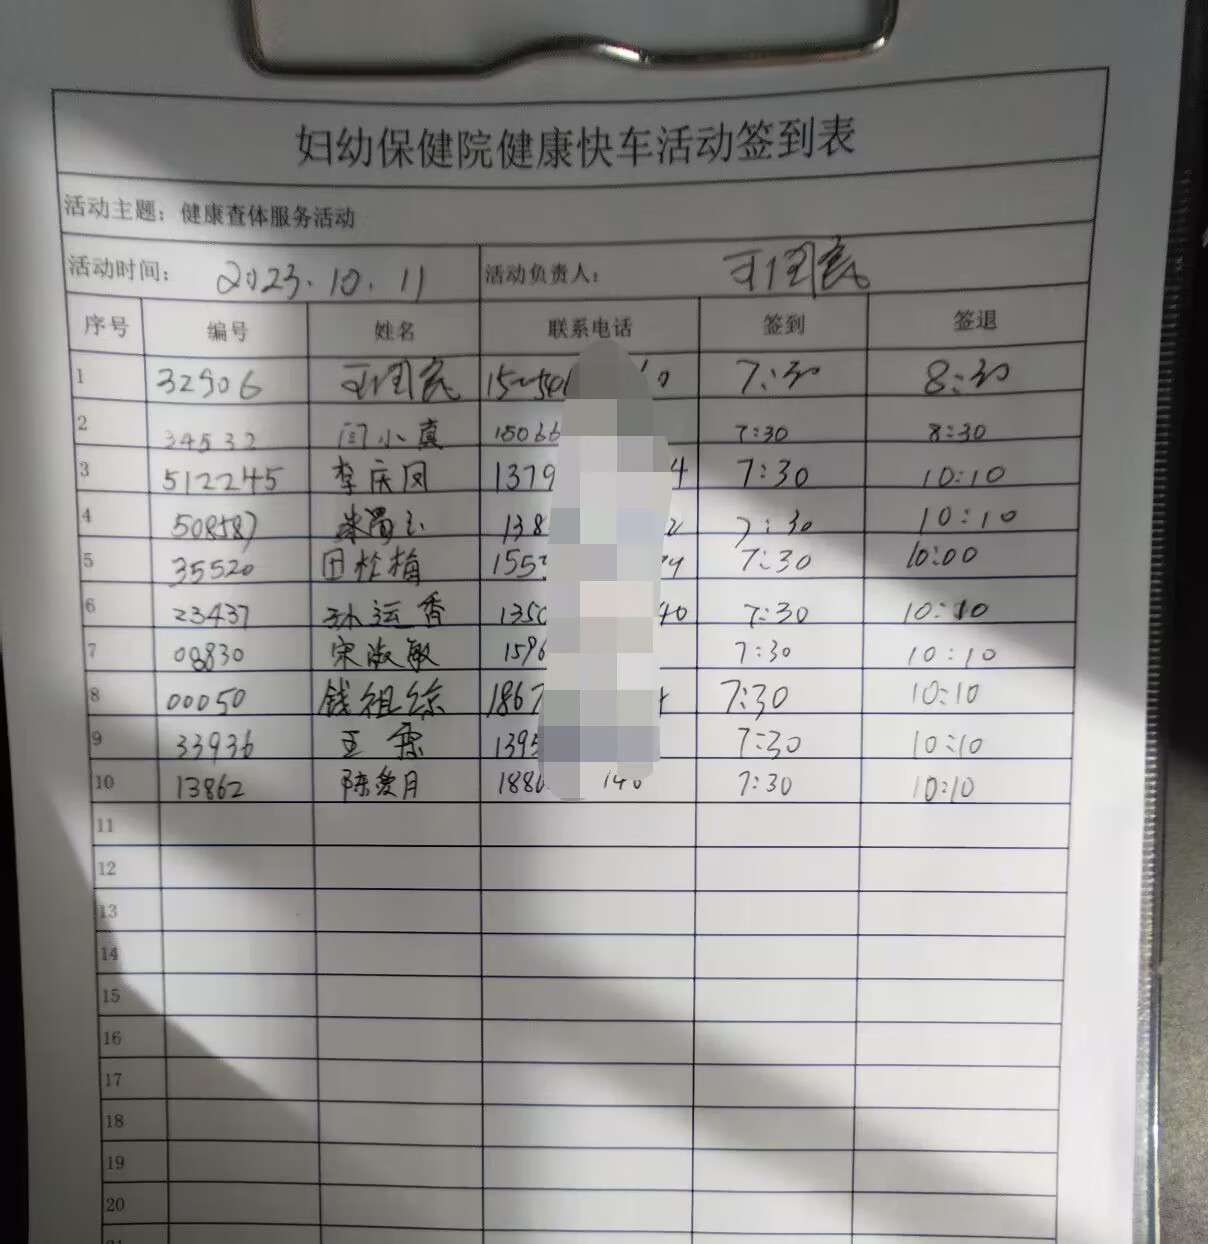 妇幼保健院健康快车活动签到表
活动主题：健康查体服务活动
活动时间： 2023.10.11 活动负责人：
序号 编号 姓名 联系电话 签到 签退
1 32906 7:30 8:30
2 34532 闫小真 15066 7:30 8:30
3 512245 李庆凤 1379 4 7:30 10:10
4 508587 138 2 7:30 10:10
5 35520 田栓梅 155 7:30 10:00
6 23437 孙运香 1350 40 7:30 10:10
7 08830 宋淑敏 1596 7:30 10:10
8 00050 钱祖 1867 7:30 10:10
9 33936 王霞 1395 7:30 10:10
10 13862 陈爱月 188 140 7:30 10:10
11
12
13
14
15
16
17
18
19
20